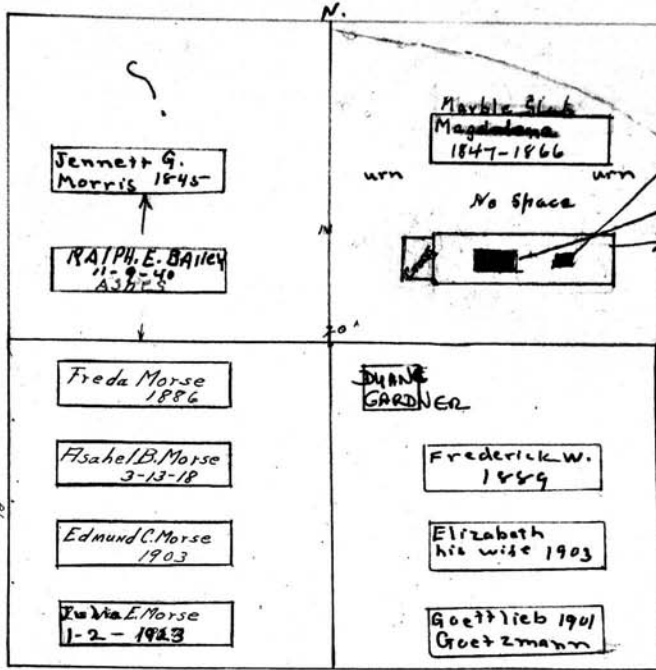 N.
?
Jennett G.
Morris 1845
RALPH. E. BAILEY
11-9-40
ASHES
Marble Slab
Magdalena
1847-1866
urn
urn
No Space
20'
Freda Morse
1886
Asahel B. Morse
3-13-18
Edmund C. Morse
1903
Julia E. Morse
1-2-1923
DUANE
GARDNER
Frederick W.
1889
Elizabeth
his wife 1903
Goettlieb 1901
Goetzmann